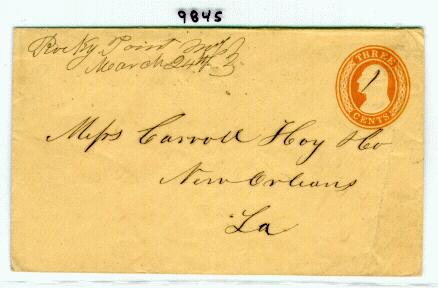 9845
Rocky Point
March 24th
THREE
CENTS
Mess Carroll Hoy & Co
New Orleans
La